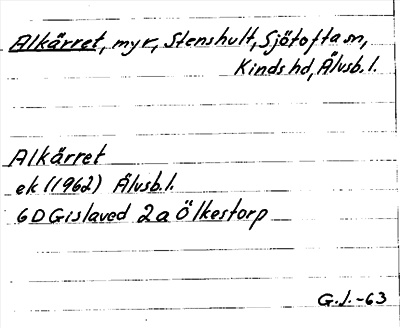 Alkärret, myr, Stenshult, Sjötofta sn,
Kinds hd, Älvsb. l.
Alkärret
ek (1962) Älvsb. l.
6D Gislaved 2a Ölkestorp
G.J.-63